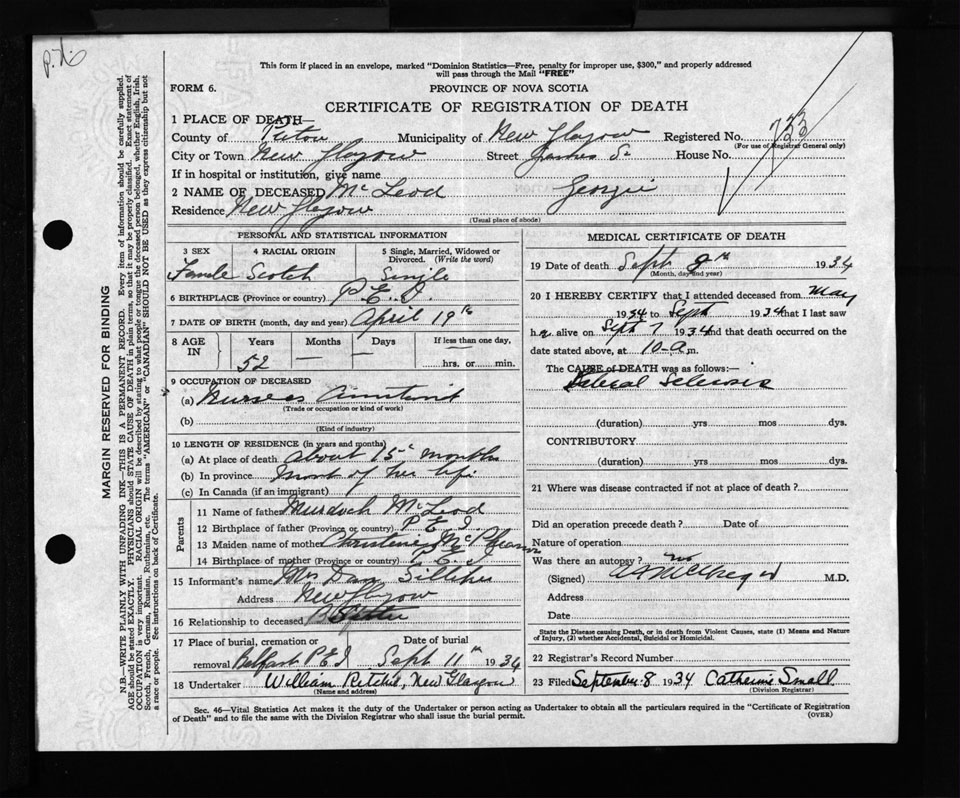 P.D.
This form if placed in an envelope, marked "Dominion Statistics—Free, penalty for improper use, $300," and properly addressed
will pass through the Mail "FREE"
FORM 6. PROVINCE OF NOVA SCOTIA
CERTIFICATE OF REGISTRATION OF DEATH
1 PLACE OF DEATH—
County of Pictou Municipality of New Glasgow Registered No. 733
(For use of Registrar General only)
City or Town New Glasgow Street James St House No.
If in hospital or institution, give name
2 NAME OF DECEASED McLeod Georgie
Residence New Glasgow
(Usual place of abode)
PERSONAL AND STATISTICAL INFORMATION
3 SEX 4 RACIAL ORIGIN 5 Single, Married, Widowed or Divorced. (Write the word)
Female Scotch Single
6 BIRTHPLACE (Province or country) P.E.I.
7 DATE OF BIRTH (month, day and year) April 19th
8 AGE IN Years Months Days If less than one day,
52 — — hrs. or min.
9 OCCUPATION OF DECEASED
(a) Nurses
(Trade or occupation or kind of work)
(b)
(Kind of industry)
10 LENGTH OF RESIDENCE (in years and months)
(a) At place of death about 15 months
(b) In province Most of her life
(c) In Canada (if an immigrant)
Parents
11 Name of father Murdoch McLeod
12 Birthplace of father (Province or country) P.E.I.
13 Maiden name of mother Christenie McPhearson
14 Birthplace of mother (Province or country) P.E.I.
15 Informant's name Mrs Dan
Address New Glasgow
16 Relationship to deceased Sister
17 Place of burial, cremation or removal Belfast P.E.I Date of burial Sept 11th 1934
18 Undertaker William Ritchie, New Glasgow
(Name and address)
MEDICAL CERTIFICATE OF DEATH
19 Date of death Sept 8th 1934
(Month, day and year)
20 I HEREBY CERTIFY that I attended deceased from May
1934 to Sept 1934 that I last saw
h er alive on Sept 7 1934 and that death occurred on
date stated above, at 10-a m.
The CAUSE of DEATH was as follows:—
Sclerosis
(duration) yrs mos dys.
CONTRIBUTORY
(duration) yrs mos dys.
21 Where was disease contracted if not at place of death?
Did an operation precede death? Date of
Nature of operation
Was there an autopsy? no
(Signed) M.D.
Address
Date
State the Disease causing Death, or in death from Violent Causes, state (1) Means and Nature
of Injury, (2) whether Accidental, Suicidal or Homicidal.
22 Registrar's Record Number
23 Filed September 8 1934 Catherine Small
(Division Registrar)
Sec. 46—Vital Statistics Act makes it the duty of the Undertaker or person acting as Undertaker to obtain all the particulars required in the "Certificate of Registration
of Death" and to file the same with the Division Registrar who shall issue the burial permit. (OVER)
MARGIN RESERVED FOR BINDING
N.B.—WRITE PLAINLY WITH UNFADING INK—THIS IS A PERMANENT RECORD. Every item of information should be carefully supplied.
AGE should be stated EXACTLY. PHYSICIANS should STATE CAUSE OF DEATH in plain terms, so that it may be properly classified. Exact statement of
OCCUPATION is very important. RACIAL ORIGIN will be described by stating to what people or tongue the deceased person belonged, whether English, Irish,
Scotch, French, German, Russian, Ruthenian, etc. The terms "AMERICAN" or "CANADIAN" SHOULD NOT BE USED as they express citizenship but not
a race or people. See instructions on back of Certificate.